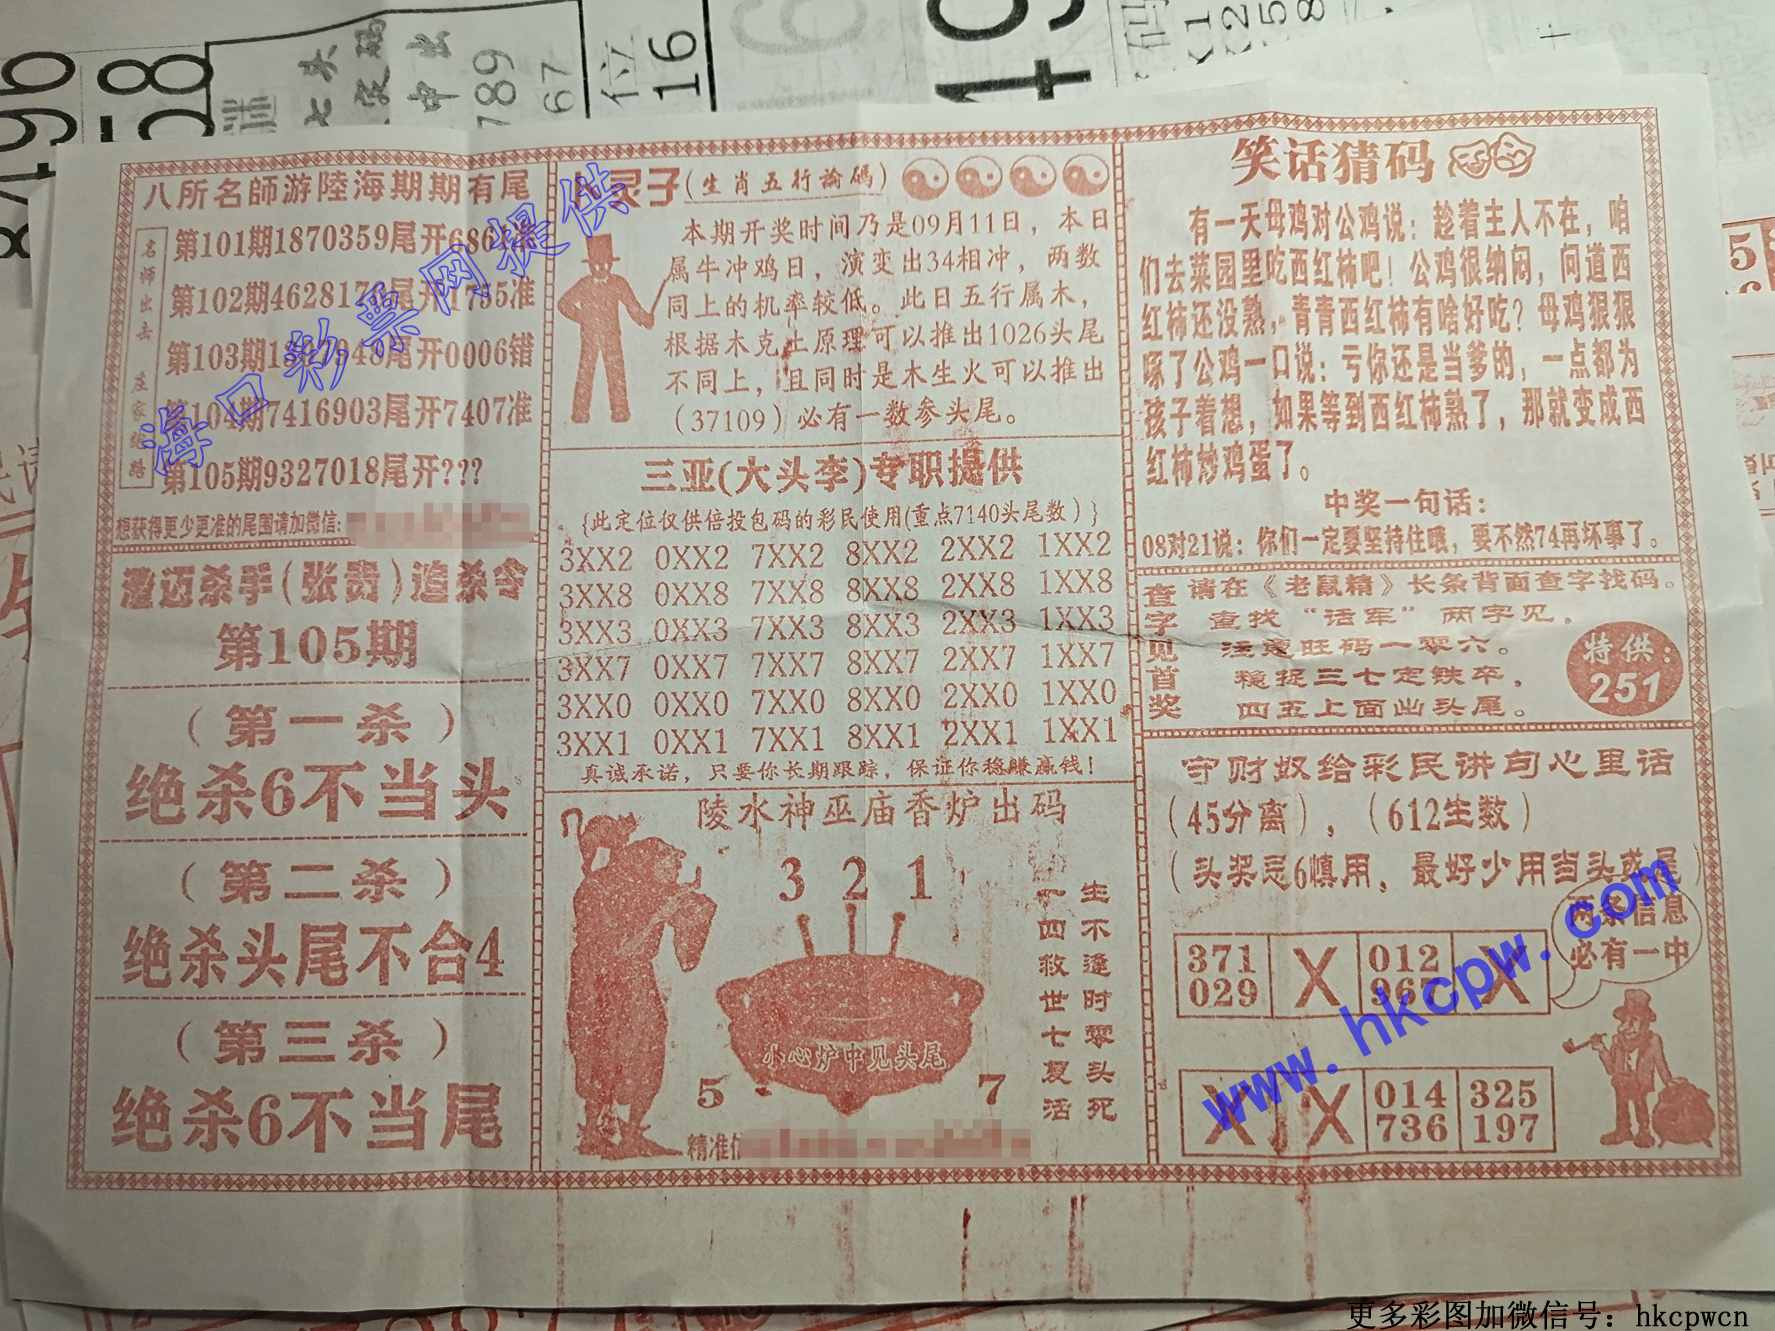 八所名師游陸海期期有尾
名师出击 庄家绝路
第101期1870359尾开686
第102期462817 尾开1735准
第103期1 948尾开0006错
第104期7416903尾开7407准
第105期9327018尾开???
想获得更少更准的尾图请加微信:
澄迈杀手(张贵)追杀令
第105期
(第一杀)
绝杀6不当头
(第二杀)
绝杀头尾不合4
(第三杀)
绝杀6不当尾
灵子(生肖五行论码)
本期开奖时间乃是09月11日，本日
属牛冲鸡日，演变出34相冲，两数
同上的机率较低。此日五行属木，
根据木克土原理可以推出1026头尾
不同上，且同时是木生火可以推出
(37109)必有一数参头尾。
三亚(大头李)专职提供
{此定位仅供倍投包码的彩民使用(重点7140头尾数)}
3XX2 0XX2 7XX2 8XX2 2XX2 1XX2
3XX8 0XX8 7XX8 8XX8 2XX8 1XX8
3XX3 0XX3 7XX3 8XX3 2XX3 1XX3
3XX7 0XX7 7XX7 8XX7 2XX7 1XX7
3XX0 0XX0 7XX0 8XX0 2XX0 1XX0
3XX1 0XX1 7XX1 8XX1 2XX1 1XX1
真诚承诺，只要你长期跟踪，保证你稳赚赢钱！
陵水神巫庙香炉出码
3 2 1
生不逢时零头死
一四救世七复活
小心炉中见头尾
5 7
精准
笑话猜码
有一天母鸡对公鸡说：趁着主人不在，咱
们去菜园里吃西红柿吧！公鸡很纳闷，问道西
红柿还没熟，青青西红柿有啥好吃？母鸡狠狠
啄了公鸡一口说：亏你还是当爹的，一点都为
孩子着想，如果等到西红柿熟了，那就变成西
红柿炒鸡蛋了。
中奖一句话：
08对21说：你们一定要坚持住哦，要不然74再坏事了。
查字见首奖
请在《老鼠精》长条背面查字找码。
查找“话军”两字见，
注意旺码一零六。
稳捉三七定铁卒，
四五上面出头尾。
特供：
251
守财奴给彩民讲句心里话
(45分离)，(612生数)
(头奖忌6慎用，最好少用当头或尾)
两条信息
必有一中
371 X 012 X
029 967
X X 014 325
736 197
海口彩票网提供
www.hkcpw.com
更多彩图加微信号：hkcpwcn